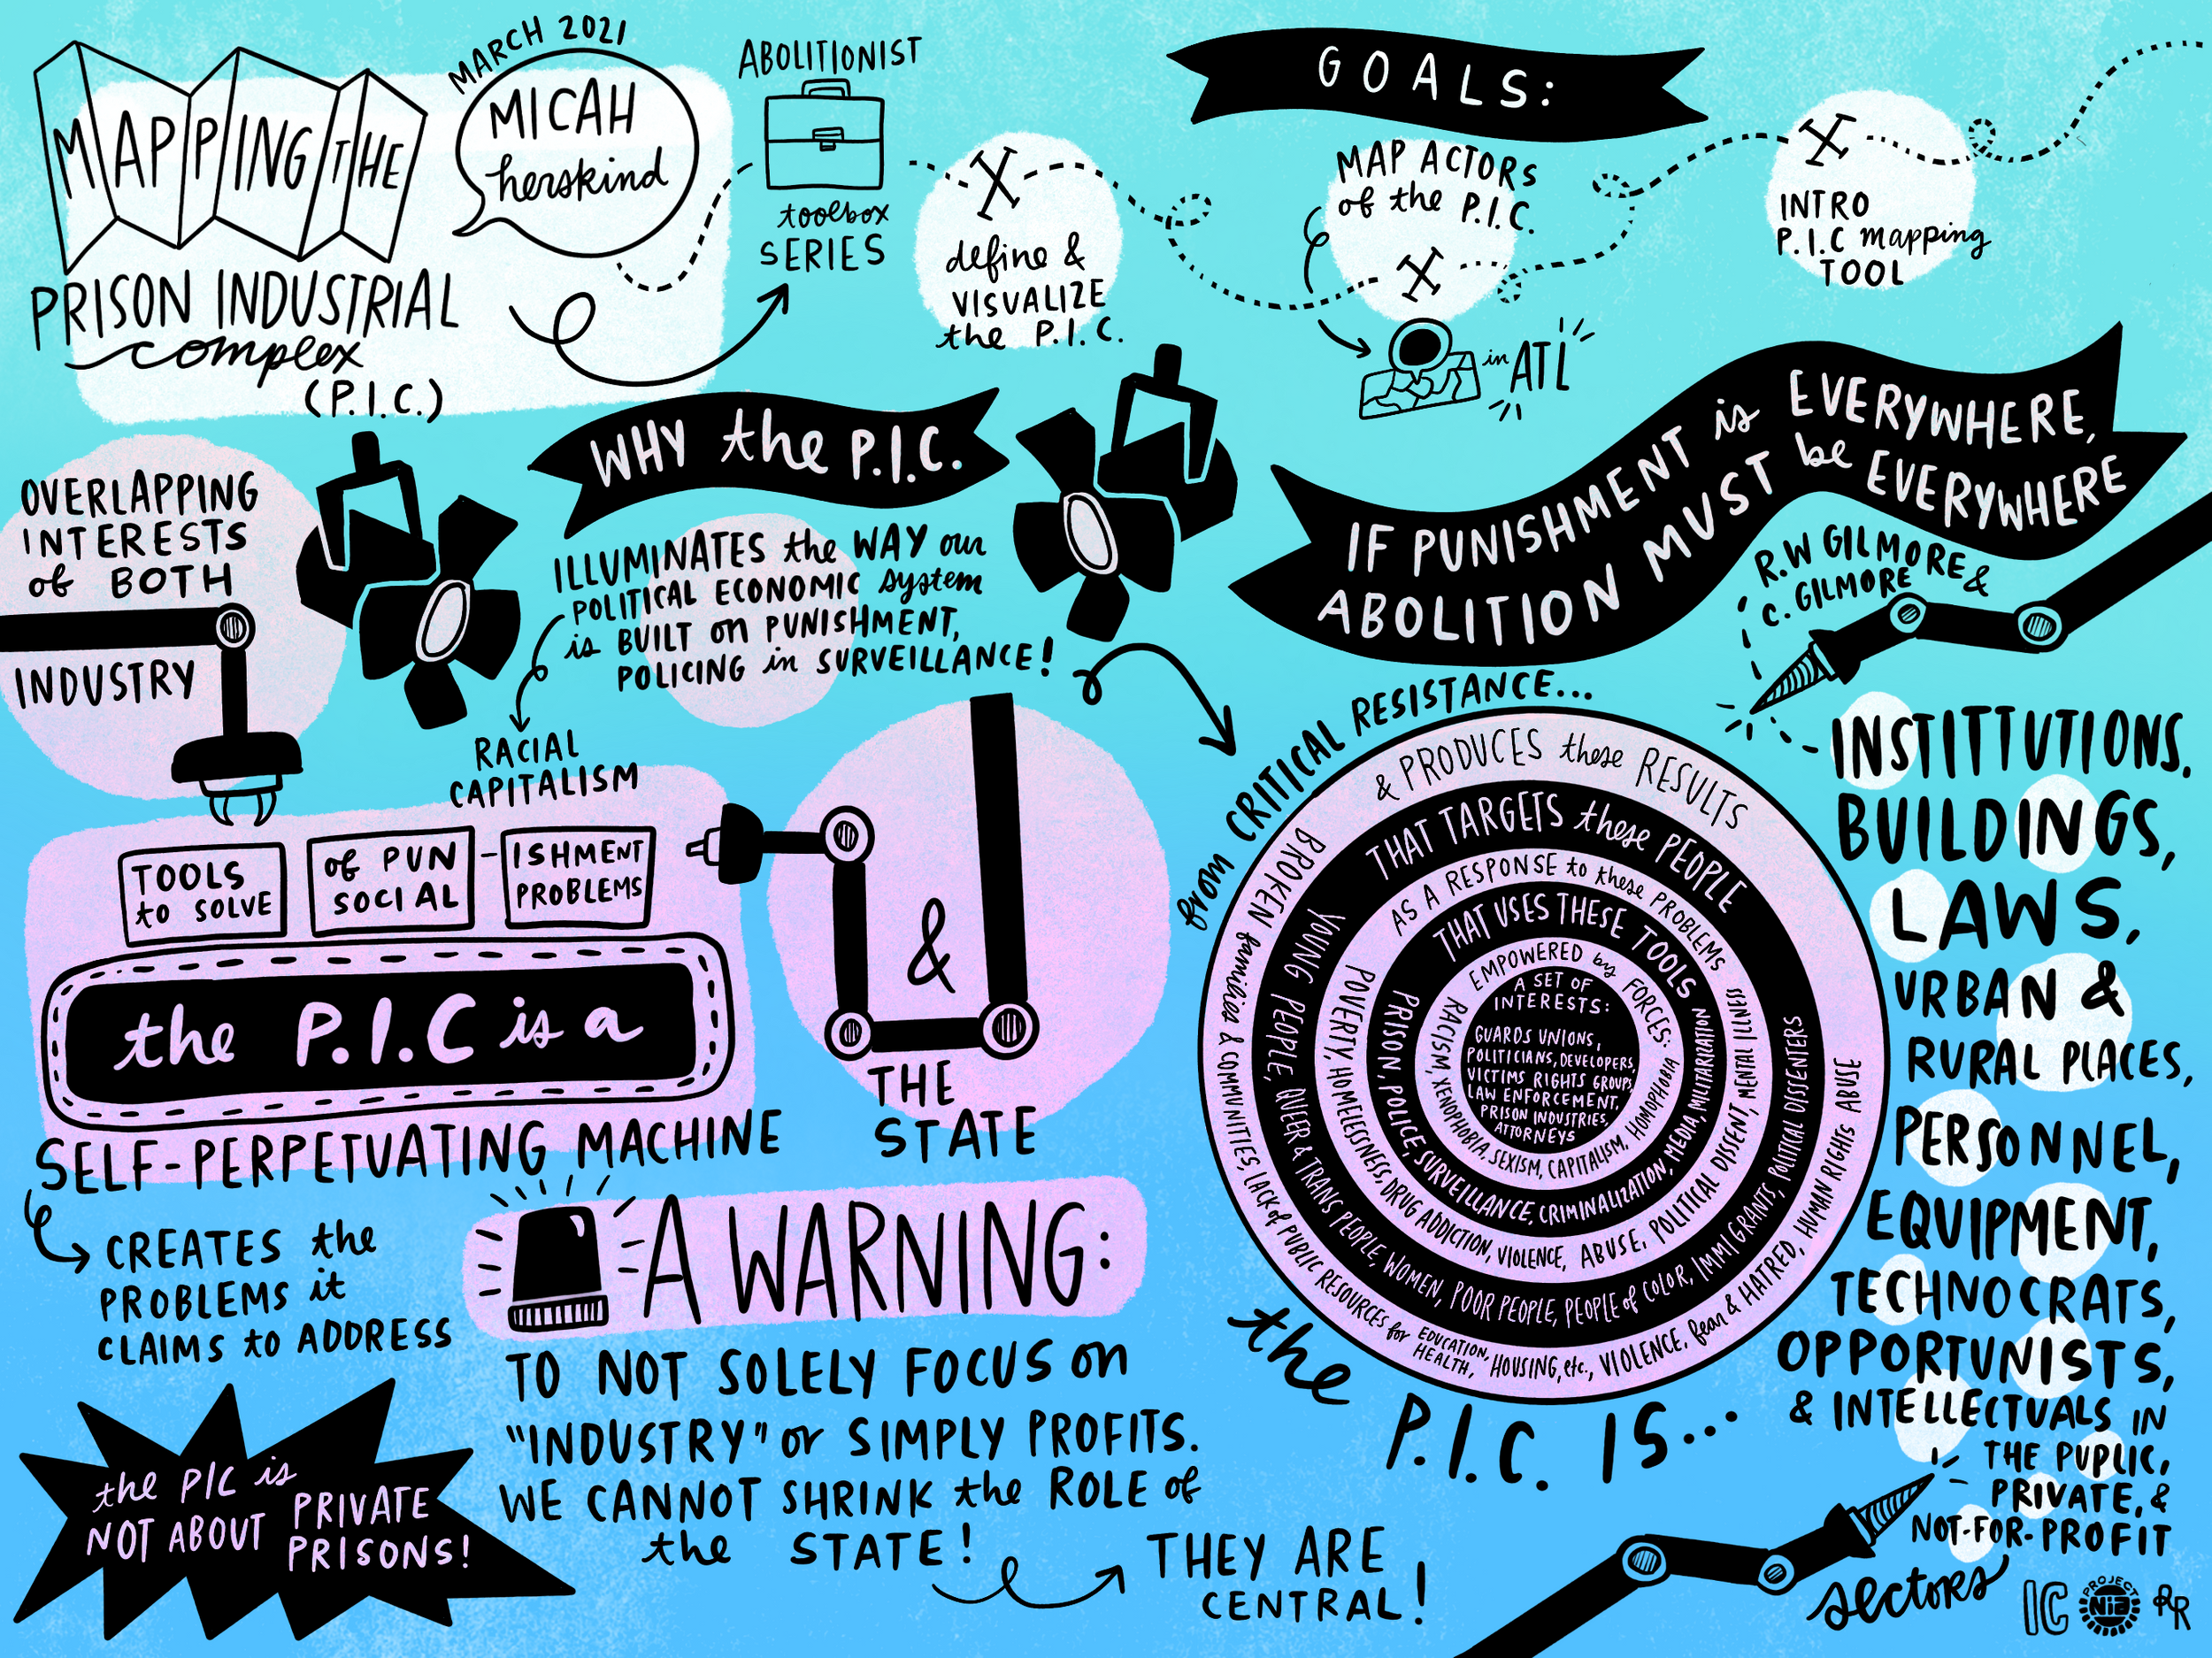 MAPPING THE
PRISON INDUSTRIAL
complex
(P.I.C.)
MARCH 2021
MICAH
herskind
ABOLITIONIST
toolbox
SERIES
GOALS:
define &
VISUALIZE
the P.I.C.
MAP ACTORS
of the P.I.C.
in ATL
INTRO
P.I.C mapping
TOOL
WHY the P.I.C.
ILLUMINATES the WAY our
POLITICAL ECONOMIC system
is BUILT on PUNISHMENT,
POLICING in SURVEILLANCE!
RACIAL
CAPITALISM
OVERLAPPING
INTERESTS
of BOTH
INDUSTRY
&
THE
STATE
TOOLS
to SOLVE
of PUN
SOCIAL
-ISHMENT
PROBLEMS
the P.I.C is a
SELF-PERPETUATING MACHINE
CREATES the
PROBLEMS it
CLAIMS to ADDRESS
the PIC is
NOT ABOUT PRIVATE
PRISONS!
A WARNING:
TO NOT SOLELY FOCUS on
"INDUSTRY" or SIMPLY PROFITS.
WE CANNOT SHRINK the ROLE of
the STATE!
THEY ARE
CENTRAL!
IF PUNISHMENT is EVERYWHERE,
ABOLITION MUST be EVERYWHERE
R.W GILMORE &
C. GILMORE
from CRITICAL RESISTANCE...
the P.I.C. IS...
A SET OF
INTERESTS:
GUARDS UNIONS,
POLITICIANS, DEVELOPERS,
VICTIMS RIGHTS GROUPS,
LAW ENFORCEMENT,
PRISON INDUSTRIES,
ATTORNEYS
EMPOWERED by FORCES:
RACISM, XENOPHOBIA, SEXISM, CAPITALISM, HOMOPHOBIA
THAT USES THESE TOOLS
PRISON, POLICE, SURVEILLANCE, CRIMINALIZATION, MEDIA, MILITARIZATION
AS A RESPONSE to these PROBLEMS
POVERTY, HOMELESSNESS, DRUG ADDICTION, VIOLENCE, ABUSE, POLITICAL DISSENT, MENTAL ILLNESS
THAT TARGETS these PEOPLE
YOUNG PEOPLE, QUEER & TRANS PEOPLE, WOMEN, POOR PEOPLE, PEOPLE of COLOR, IMMIGRANTS, POLITICAL DISSENTERS
& PRODUCES these RESULTS
BROKEN families & COMMUNITIES, LACK of PUBLIC RESOURCES for EDUCATION, HEALTH, HOUSING, etc., VIOLENCE, fear & HATRED, HUMAN RIGHTS ABUSE
INSTITTUTIONS.
BUILDINGS,
LAWS,
URBAN &
RURAL PLACES,
PERSONNEL,
EQUIPMENT,
TECHNOCRATS,
OPPORTUNISTS,
& INTELLECTUALS IN
THE PUPLIC,
PRIVATE, &
NOT-FOR-PROFIT
sectors
IC
PROJECT
NiA
RR